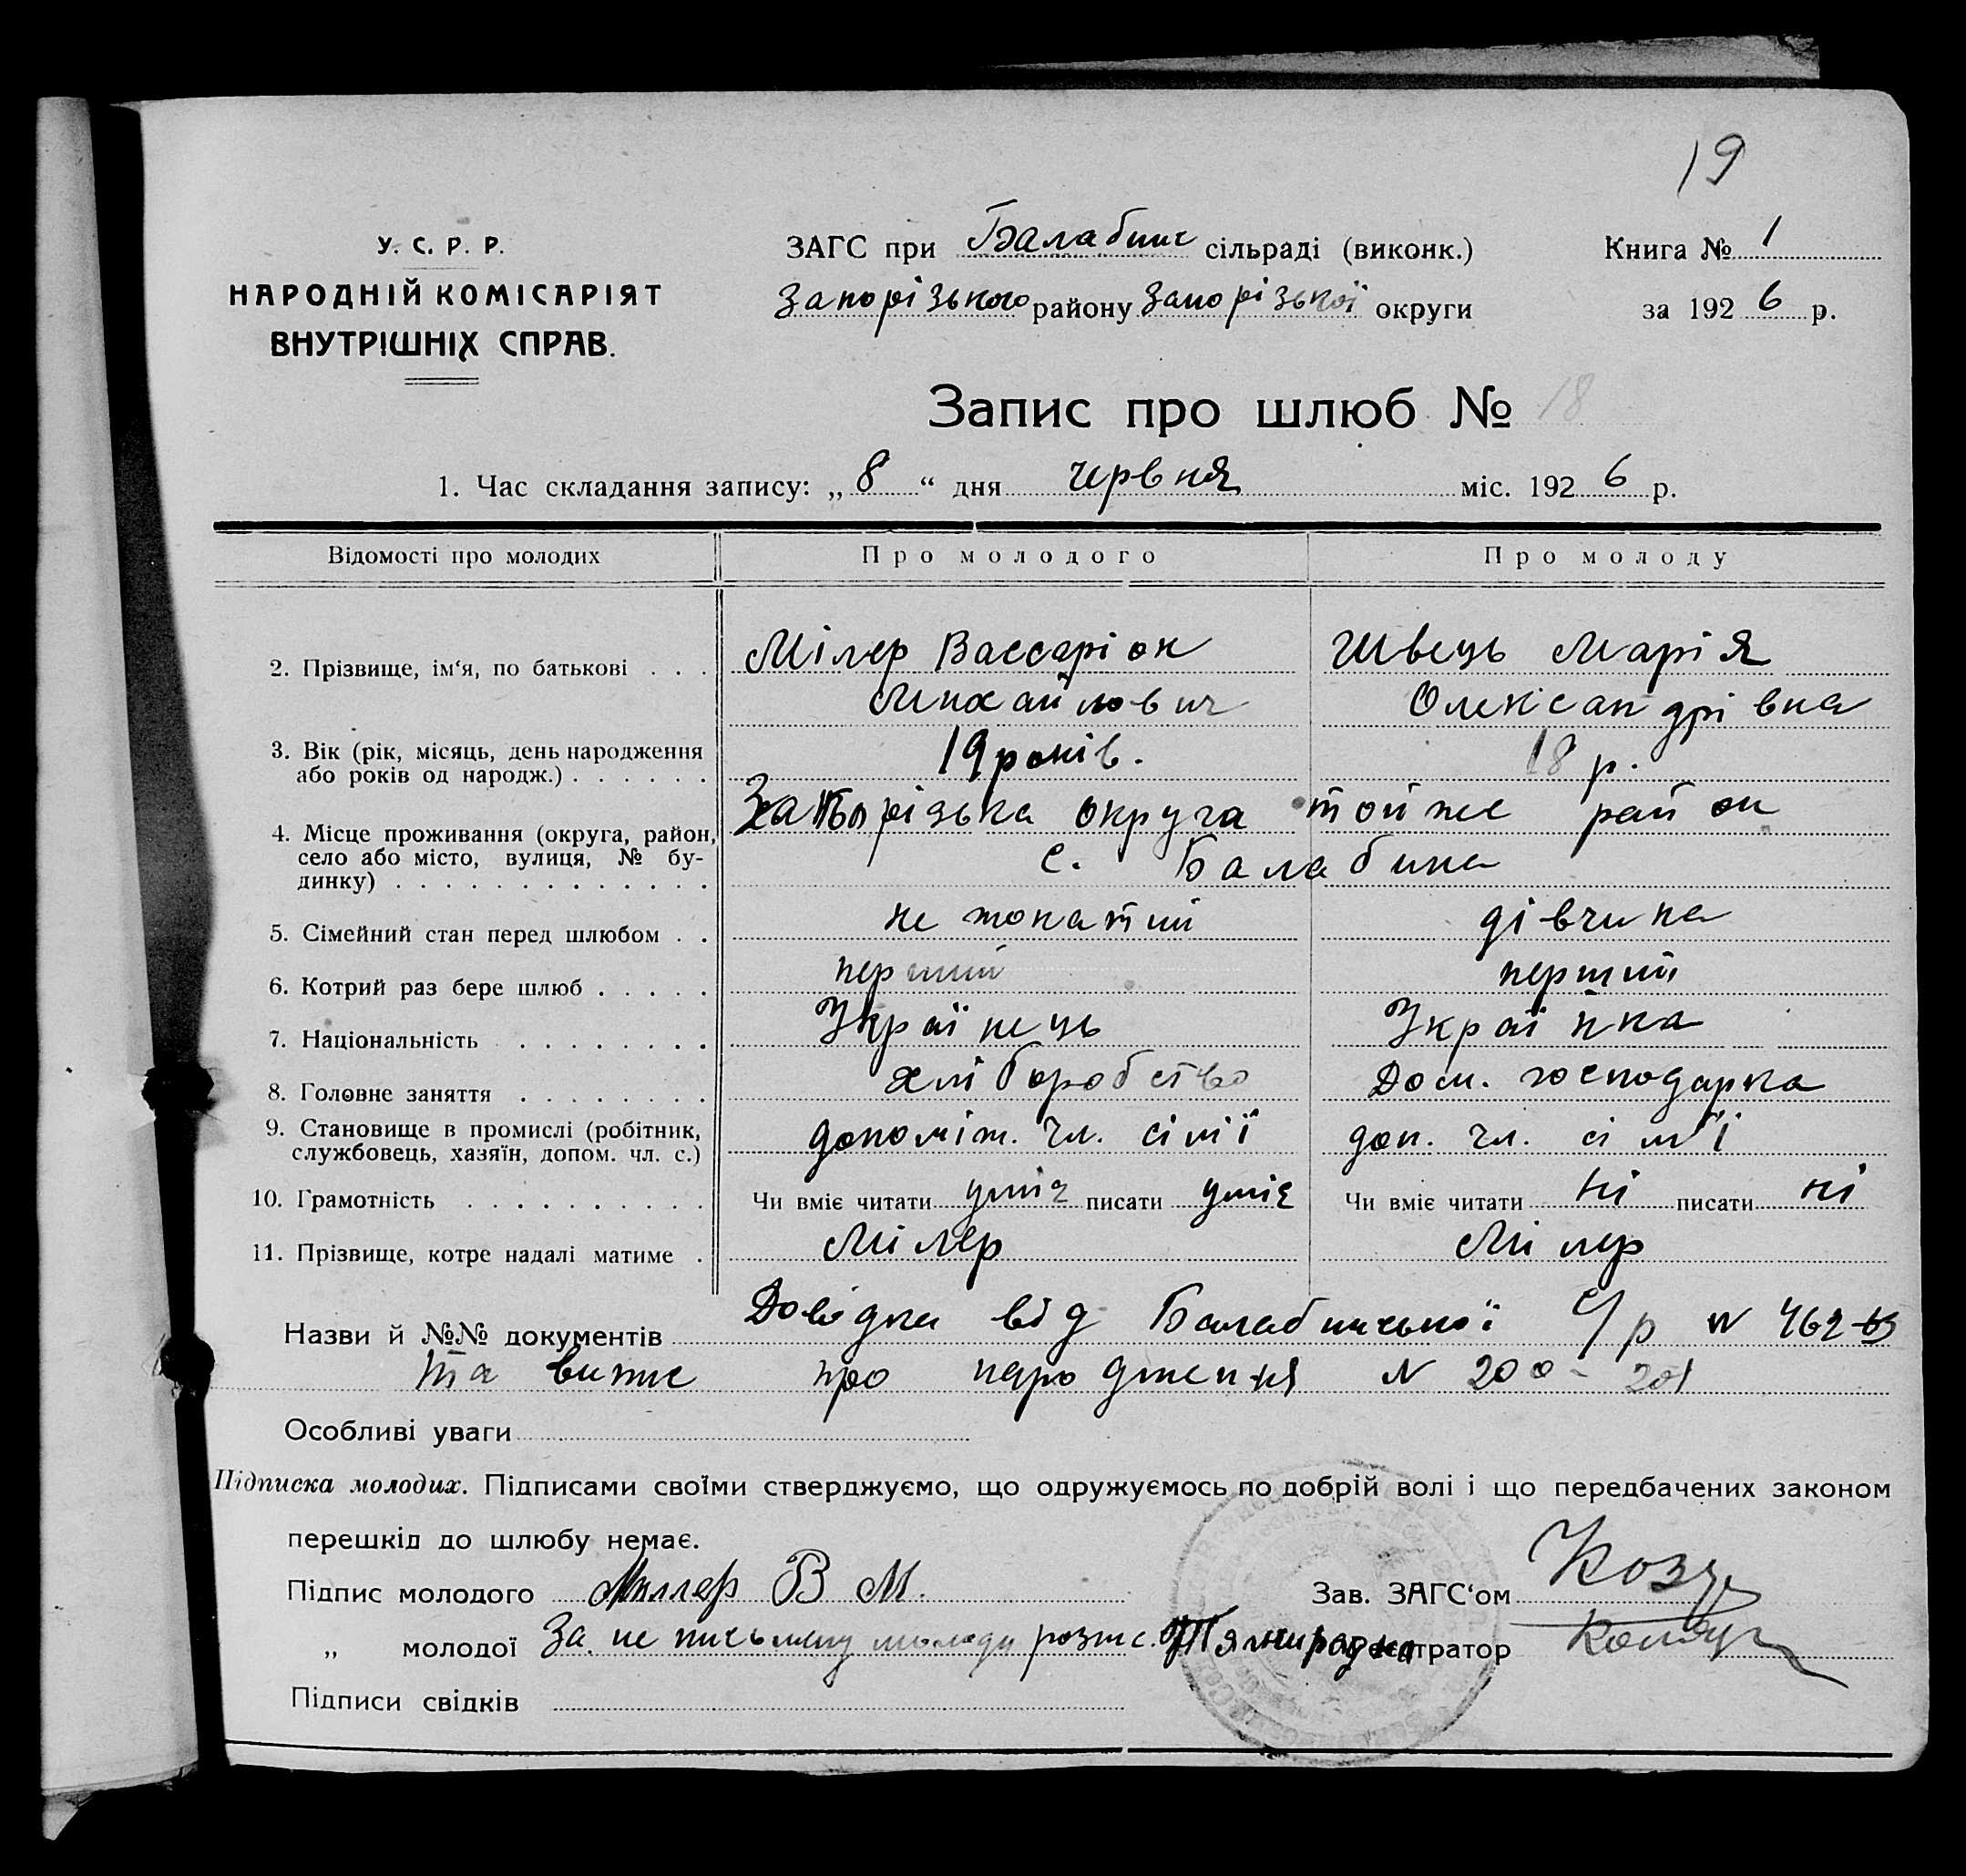 19
У. С. Р. Р.
НАРОДНІЙ КОМІСАРІЯТ
ВНУТРІШНІХ СПРАВ.
ЗАГС при Балабинс сільраді (виконк.)
Запорізького району Запорізької округи
Книга № 1
за 1926 р.
Запис про шлюб № 18
1. Час складання запису: „ 8 “ дня червня міс. 1926 р.
Відомості про молодих Про молодого Про молоду
2. Прізвище, ім‘я, по батькові . . . Мілер Вассаріон Швець Марія
Михайлович Олександрівна
3. Вік (рік, місяць, день народження
або років од народж.) . . . . . . 19 років. 18 р.
4. Місце проживання (округа, район, Запорізька округа той же район
село або місто, вулиця, № бу-
динку) . . . . . . . . . . . . . с. Балабина
5. Сімейний стан перед шлюбом . . не жонатий дівчина
6. Котрий раз бере шлюб . . . . . перший перший
7. Національність . . . . . . . . Українець Українка
8. Головне заняття . . . . . . . . хліборобство Дом. господарка
9. Становище в промислі (робітник,
службовець, хазяїн, допом. чл. с.) допоміж. чл. сімї доп. чл. сім'ї
10. Грамотність . . . . . . . . . . Чи вміє читати уміє писати уміє Чи вміє читати ні писати ні
11. Прізвище, котре надалі матиме . Мілер Мілер
Назви й №№ документів Довідка від Балабинської С/р N 462-63
та випис про народження N 200 - 201
Особливі уваги
Підписка молодих. Підписами своїми стверджуємо, що одружуємось по добрій волі і що передбачених законом
перешкід до шлюбу немає.
Підпис молодого Миллер В М. Зав. ЗАГС‘ом
„ молодої За не письмену молоду розпис. Реєстратор
Підписи свідків